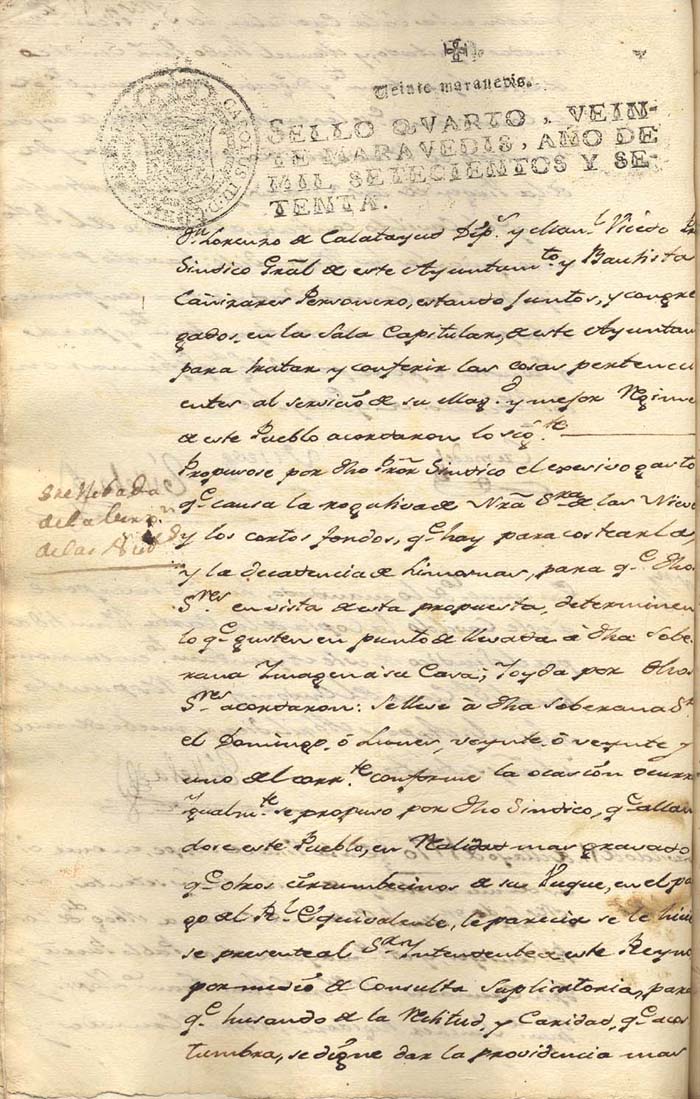 Veinte maravedis.
SELLO QVARTO, VEIN-
TE MARAVEDIS, AÑO DE
MIL SETECIENTOS Y SE-
TENTA.
CAROLUS III D
Dn. Lorenzo de Calatayud Dip.o y Man.l Vicedo
Sindico Gral de este Ayuntam.to y Bautista
Cañizares Personero, estando juntos, y congre
gados, en la Sala Capitular, de este Ayuntam
para tratar y conferir las cosas pertenec
ientes al servicio de su Mag.d y mejor Regime
de este Pueblo acordaron lo sig.te
Propusose por dho Pror Sindico el exsesivo gasto
q.e causa la rogativa de Nra Sra de las Nieve
y los cortos fondos, q.e hay para costearlas,
y la decadencia de Limosnas, para q.e dhos
S.res en vista de esta propuesta, determinen
lo q.e gusten en punto de llevada à dha Sobe
rana Imagen à su Casa; Y oyda por dhos
S.res acordaron: se lleve à dha Soberana Sra
el Domingo, ò Lunes, veynte, ò veynte y
uno del corr.te conforme la ocasion ocurra
Ygualm.te se propuso por dho Sindico, q.e allan
dose este Pueblo, en realidad mas gravado
q.e otros circumbecinos de su Buque, en el pa
go del R.l Equivalente, le parecia se le hici
se presente al S.or Intendente de este Reyno
por medio de Consulta Suplicatoria, para
q.e husando de la Retitud, y Caridad, q.e acos
tumbra, se digne dar la providencia mas
Sre llebada
de la
de las Nieb